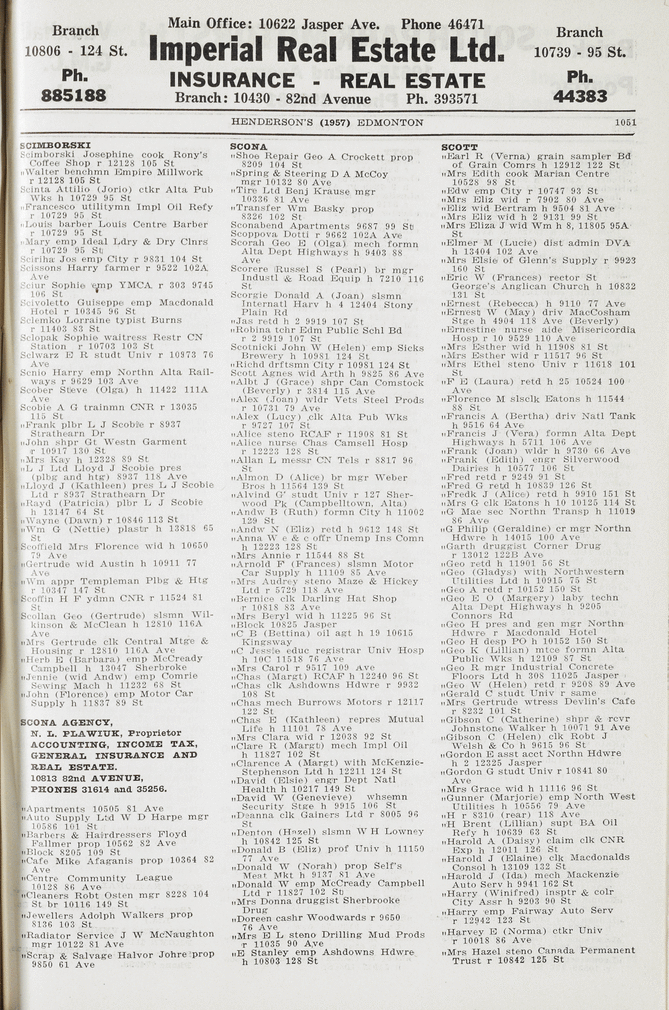 Main Office: 10622 Jasper Ave. Phone 46471
Branch
10806 - 124 St.
Ph.
885188
Imperial Real Estate Ltd.
INSURANCE - REAL ESTATE
Branch: 10430 - 82nd Avenue Ph. 393571
Branch
10739 - 95 St.
Ph.
44383
HENDERSON'S (1957) EDMONTON 1051
SCIMBORSKI
Scimborski Josephine cook Rony's
Coffee Shop r 12128 105 St
"Walter benchmn Empire Millwork
r 12128 105 St
Scinta Attilio (Jorio) ctkr Alta Pub
Wks h 10729 95 St
"Francesco utilitymn Impl Oil Refy
r 10729 95 St
"Louis barber Louis Centre Barber
r 10729 95 St
"Mary emp Ideal Ldry & Dry Clnrs
r 10729 95 St
Sciriha Jos emp City r 9831 104 St
Scissons Harry farmer r 9522 102A
Ave
Sciur Sophie emp YMCA r 303 9745
106 St
Scivoletto Guiseppe emp Macdonald
Hotel r 10345 96 St
Sclemko Lorraine typist Burns
r 11403 83 St
Sclopak Sophie waitress Restr CN
Station r 10703 103 St
Sclwarz E R studt Univ r 10973 76
Ave
Scnio Harry emp Northn Alta Rail-
ways r 9629 103 Ave
Scober Steve (Olga) h 11422 111A
Ave
Scobie A G trainmn CNR r 13035
115 St
"Frank plbr L J Scobie r 8937
Strathearn Dr
"John shpr Gt Westn Garment
r 10917 130 St
"Mrs Kay h 12328 89 St
"L J Ltd Lloyd J Scobie pres
(plbg and htg) 8937 118 Ave
"Lloyd J (Kathleen) pres L J Scobie
Ltd r 8937 Strathearn Dr
"Rayd (Patricia) plbr L J Scobie
h 13147 64 St
"Wayne (Dawn) r 10846 113 St
"Wm G (Nettie) plastr h 13818 65
St
Scoffield Mrs Florence wid h 10650
79 Ave
"Gertrude wid Austin h 10911 77
Ave
"Wm appr Templeman Plbg & Htg
r 10347 147 St
Scoffin H F ydmn CNR r 11524 81
St
Scollan Geo (Gertrude) slsmn Wil-
kinson & McClean h 12810 116A
Ave
"Mrs Gertrude clk Central Mtge &
Housing r 12810 116A Ave
"Herb E (Barbara) emp McCready
Campbell h 13047 Sherbroke
"Jennie (wid Andw) emp Comrie
Sewing Mach h 11232 68 St
"John (Florence) emp Motor Car
Supply h 11837 89 St
SCONA AGENCY,
N. L. PLAWIUK, Proprietor
ACCOUNTING, INCOME TAX,
GENERAL INSURANCE AND
REAL ESTATE.
10813 82nd AVENUE,
PHONES 31614 and 35256.
"Apartments 10505 81 Ave
"Auto Supply Ltd W D Harpe mgr
10586 101 St
"Barbers & Hairdressers Floyd
Fallmer prop 10562 82 Ave
"Block 8205 109 St
"Cafe Mike Afaganis prop 10364 82
Ave
"Centre Community League
10128 86 Ave
"Cleaners Robt Osten mgr 8228 104
St br 10116 149 St
"Jewellers Adolph Walkers prop
8136 103 St
"Radiator Service J W McNaughton
mgr 10122 81 Ave
"Scrap & Salvage Halvor Johre prop
9850 61 Ave
SCONA
"Shoe Repair Geo A Crockett prop
8209 104 St
"Spring & Steering D A McCoy
mgr 10132 80 Ave
"Tire Ltd Benj Krause mgr
10336 81 Ave
"Transfer Wm Basky prop
8326 102 St
Sconabend Apartments 9687 99 St
Scoppova Dotti r 9662 102A Ave
Scorah Geo E (Olga) mech formn
Alta Dept Highways h 9403 88
Ave
Scorere Russel S (Pearl) br mgr
Industl & Road Equip h 7210 116
St
Scorgie Donald A (Joan) slsmn
Internatl Harv h 4 12404 Stony
Plain Rd
"Jas retd h 2 9919 107 St
"Robina tchr Edm Public Schl Bd
r 2 9919 107 St
Scotnicki John W (Helen) emp Sicks
Brewery h 10981 124 St
"Richd drftsmn City r 10981 124 St
Scott Agnes wid Arth h 9825 86 Ave
"Albt J (Grace) shpr Can Comstock
(Beverly) r 3814 115 Ave
"Alex (Joan) wldr Vets Steel Prods
r 10731 79 Ave
"Alex (Lucy) clk Alta Pub Wks
r 9727 107 St
"Alice steno RCAF r 11908 81 St
"Alice nurse Chas Camsell Hosp
r 12223 128 St
"Allan L messr CN Tels r 8817 96
St
"Almon D (Alice) br mgr Weber
Bros h 11564 139 St
"Alvind G studt Univ r 127 Sher-
wood Pk (Campbelltown, Alta)
"Andw B (Ruth) formn City h 11002
129 St
"Andw N (Eliz) retd h 9612 148 St
"Anna W e & c offr Unemp Ins Comn
h 12223 128 St
"Mrs Annie r 11544 88 St
"Arnold F (Frances) slsmn Motor
Car Supply h 11109 85 Ave
"Mrs Audrey steno Maze & Hickey
Ltd r 5729 118 Ave
"Bernice clk Darling Hat Shop
r 10818 83 Ave
"Mrs Beryl wid h 11225 96 St
"Block 10825 Jasper
"C B (Bettina) oil agt h 19 10615
Kingsway
"C Jessie educ registrar Univ Hosp
h 10C 11518 76 Ave
"Mrs Carol r 9517 109 Ave
"Chas (Margt) RCAF h 12240 96 St
"Chas clk Ashdowns Hdwre r 9932
108 St
"Chas mech Burrows Motors r 12117
122 St
"Chas E (Kathleen) repres Mutual
Life h 11101 78 Ave
"Mrs Clara wid r 12038 92 St
"Clare R (Margt) mech Impl Oil
h 11827 102 St
"Clarence A (Margt) with McKenzie-
Stephenson Ltd h 12211 124 St
"David (Elsie) engr Dept Natl
Health h 10217 149 St
"David W (Genevieve) whsemn
Security Stge h 9915 106 St
"Deanna clk Gainers Ltd r 8005 96
St
"Denton (Hazel) slsmn W H Lowney
h 10842 125 St
"Donald B (Eliz) prof Univ h 11150
77 Ave
"Donald W (Norah) prop Self's
Meat Mkt h 9137 81 Ave
"Donald W emp McCready Campbell
Ltd r 11827 102 St
"Mrs Donna druggist Sherbrooke
Drug
"Doreen cashr Woodwards r 9650
76 Ave
"Mrs E L steno Drilling Mud Prods
r 11035 90 Ave
"E Stanley emp Ashdowns Hdwre
h 10803 128 St
SCOTT
"Earl R (Verna) grain sampler Bd
of Grain Comrs h 12912 122 St
"Mrs Edith cook Marian Centre
10528 98 St
"Edw emp City r 10747 93 St
"Mrs Eliz wid r 7902 80 Ave
"Eliz wid Bertram h 9504 81 Ave
"Mrs Eliz wid h 2 9131 99 St
"Mrs Eliza J wid Wm h 8, 11805 95A
St
"Elmer M (Lucie) dist admin DVA
h 13404 102 Ave
"Mrs Elsie of Glenn's Supply r 9923
160 St
"Eric W (Frances) rector St
George's Anglican Church h 10832
131 St
"Ernest (Rebecca) h 9110 77 Ave
"Ernest W (May) driv MacCosham
Stge h 4904 118 Ave (Beverly)
"Ernestine nurse aide Misericordia
Hosp r 10 9529 110 Ave
"Mrs Esther wid h 11908 81 St
"Mrs Esther wid r 11517 96 St
"Mrs Ethel steno Univ r 11618 101
St
"F E (Laura) retd h 25 10524 100
Ave
"Florence M slsclk Eatons h 11544
88 St
"Francis A (Bertha) driv Natl Tank
h 9516 64 Ave
"Francis J (Vera) formn Alta Dept
Highways h 5711 106 Ave
"Frank (Joan) wldr h 9730 66 Ave
"Frank (Edith) engr Silverwood
Dairies h 10577 106 St
"Fred retd r 9249 91 St
"Fred G retd h 10839 126 St
"Fredk J (Alice) retd h 9910 151 St
"Mrs G clk Eatons h 10 10125 114 St
"G Mae sec Northn Transp h 11019
86 Ave
"G Philip (Geraldine) cr mgr Northn
Hdwre h 14015 100 Ave
"Garth druggist Corner Drug
r 13012 122B Ave
"Geo retd h 11901 56 St
"Geo (Gladys) with Northwestern
Utilities Ltd h 10915 75 St
"Geo A retd r 10152 150 St
"Geo E O (Margery) laby techn
Alta Dept Highways h 9205
Connors Rd
"Geo H pres and gen mgr Northn
Hdwre r Macdonald Hotel
"Geo H desp PO h 10152 150 St
"Geo K (Lillian) mtce formn Alta
Public Wks h 12109 87 St
"Geo R mgr Industrial Concrete
Floors Ltd h 308 11025 Jasper
"Geo W (Helen) retd r 9208 89 Ave
"Gerald C studt Univ r same
"Mrs Gertrude wtress Devlin's Cafe
r 8232 101 St
"Gibson C (Catherine) shpr & rcvr
Johnstone Walker h 10071 91 Ave
"Gibson C (Helen) clk Robt J
Welsh & Co h 9615 96 St
"Gordon E asst acct Northn Hdwre
h 2 12225 Jasper
"Gordon G studt Univ r 10841 80
Ave
"Mrs Grace wid h 11116 96 St
"Gunner (Marjorie) emp North West
Utilities h 10556 79 Ave
"H r 8210 (rear) 118 Ave
"H Brent (Lillian) supt BA Oil
Refy h 10639 63 St
"Harold A (Daisy) claim clk CNR
Exp h 12011 126 St
"Harold J (Elaine) clk Macdonalds
Consol h 13109 132 St
"Harold J (Ida) mech Mackenzie
Auto Serv h 9941 162 St
"Harry (Winifred) insptr & colr
City Assr h 9203 90 St
"Harry emp Fairway Auto Serv
r 12942 123 St
"Harvey E (Norma) ctkr Univ
r 10018 86 Ave
"Mrs Hazel steno Canada Permanent
Trust r 10842 125 St